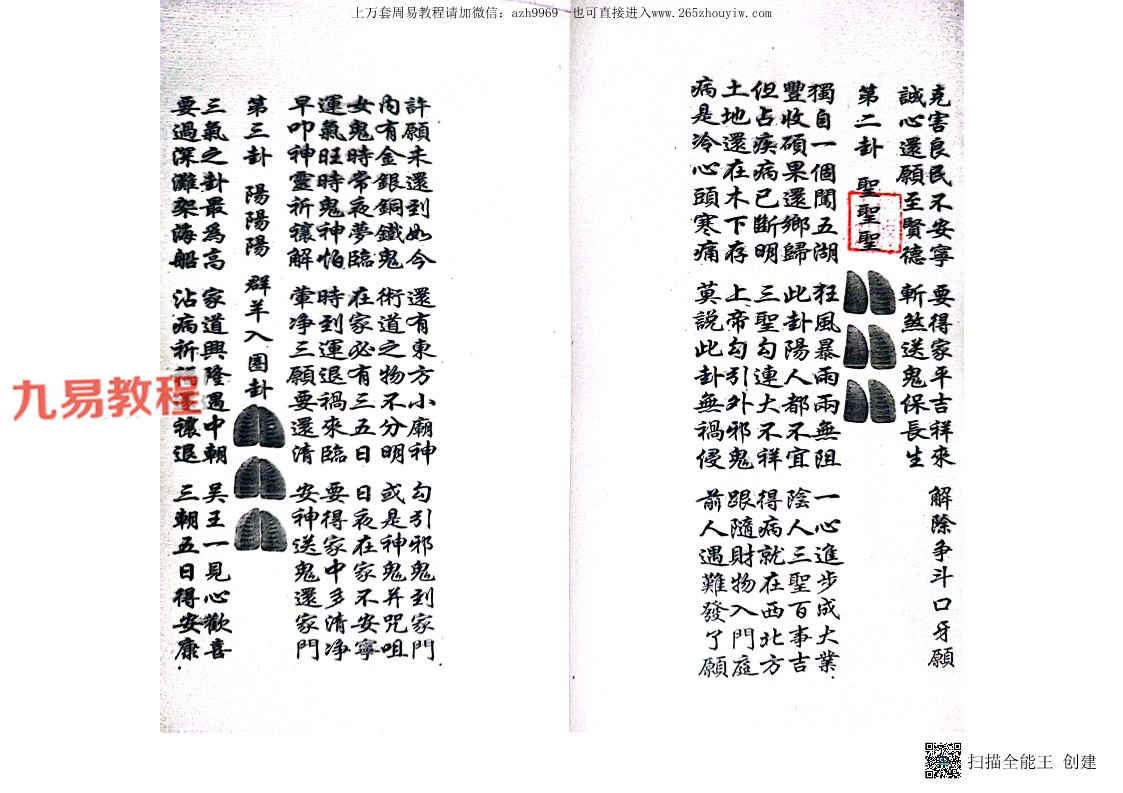 上万套周易教程请加微信：azh9969 也可直接进入www.265zhouyiw.com
克害良民不安寧 要得家平吉祥來 解除争斗口牙願
誠心還願至賢德 斬煞送鬼保長生
第二卦 聖聖聖
獨自一個闖五湖 狂風暴雨雨無阻 一心進步成大業
豐收碩果還鄉歸 此卦陽人都不宜 陰人三聖百事吉
但占疾病已斷明 三聖勾連大不祥 得病就在西北方
土地還在木下存 上帝勾引外邪鬼 跟隨財物入門庭
病是冷心頭寒痛 莫說此卦無禍侵 前人遇難發了願
許願未還到如今 還有東方小廟神 勾引邪鬼到家門
內有金銀銅鐵鬼 術道之物不分明 或是神鬼并咒咀
女鬼時常夜夢臨 在家必有三五日 日夜在家不安寧
運氣旺時鬼神怕 時到運退禍來臨 要得家中多清净
早叩神靈祈禳解 葷净三願要還清 安神送鬼還家門
第三卦 陽陽陽 群羊入圈卦
三氣之卦最為高 家道興隆遇中朝 吴王一見心歡喜
要過深灘架海船 沾病祈 禳退 三朝五日得安康
九易教程
扫描全能王 创建